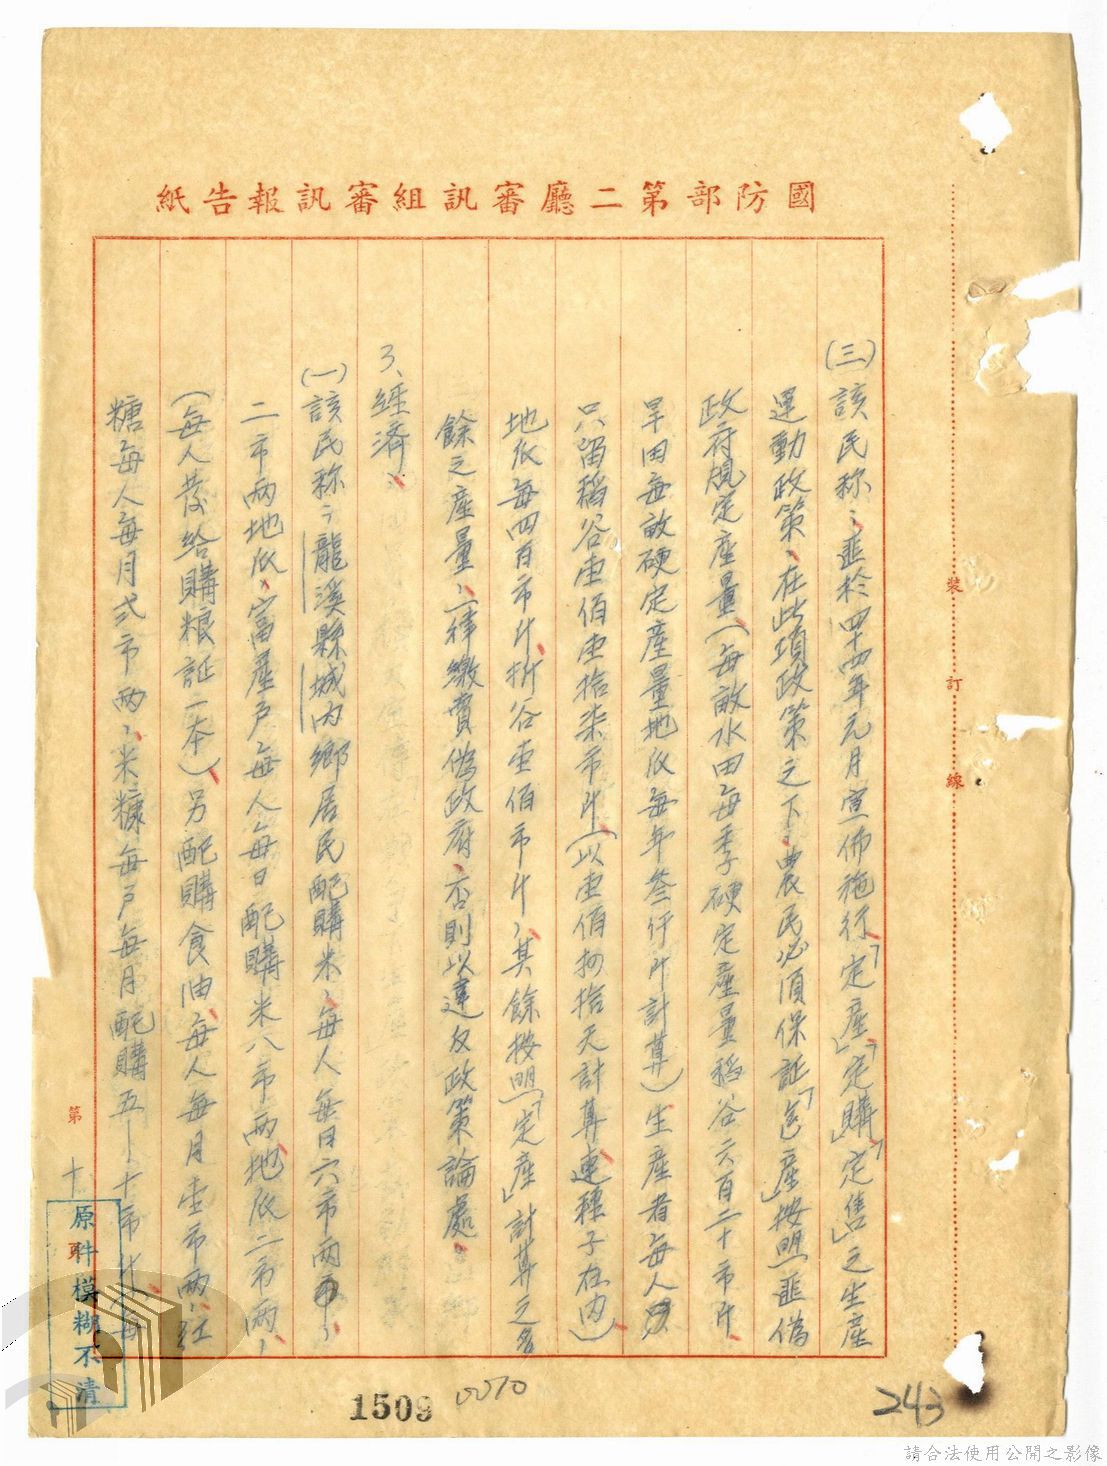 國防部第二廳審訊組審訊報告紙
(三)該民称:匪於四十四年元月宣佈施行「定產」「定購」「定售」之生產
運動政策,在此項政策之下,農民必須保証「定產」按照匪偽
政府規定產量(每畝水田每季硬定產量稻谷六百二十市斤,
旱田每畝硬定產量地瓜每年叁仟斤計算)生產者每人
只留稻谷壹佰壹拾柒市斤(以壹佰捌拾天計算連種子在內)
地瓜每四百市斤折谷壹佰市斤,其餘按照「定產」計算之多
餘之產量,一律繳賣偽政府,否則以違反政策論處。
3、經濟、
(一)該民称:龍溪縣城內鄉居民配購米,每人每日六市兩,
二市兩地瓜,富產戶每人每日配購米八市兩,地瓜二市兩,
(每人發給購粮証一本)另配購食油,每人每月壹市兩,紅
糖每人每月弍市兩,米糠每戶每月配購五-十市斤,每
裝
訂
線
第
十
原件模糊不清
1509
0070
243
請合法使用公開之影像